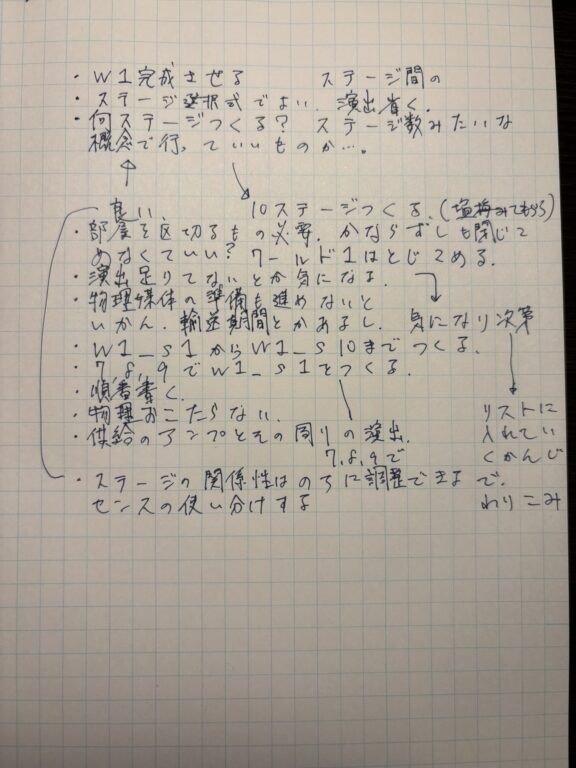 ・W1完成させる　ステージ間の
・ステージ選択式でよい．演出省く．
・何ステージつくる？ ステージ数みたいな
概念で行っていいものか…．
良い．　10ステージつくる．(塩梅みてもらう)
・部屋を区切るもの必要．かならずしも閉じて
めなくていい？ワールド1はとじてめる．
・演出足りてないとか気になる
・物理媒体の準備も進めないと
いかん．輸送期間とかあるし．気になり次第
・W1_s1からW1_s10までつくる．
・7,8,9でW1_s1をつくる．
・順番書く．
・物理おこたらない．
・供給のアンプとその周りの演出．
7,8,9で
リストに
入れてい
くかんじ
で．
わりこみ
・ステージの関係性はのちに調整できる
センスの使い分けする